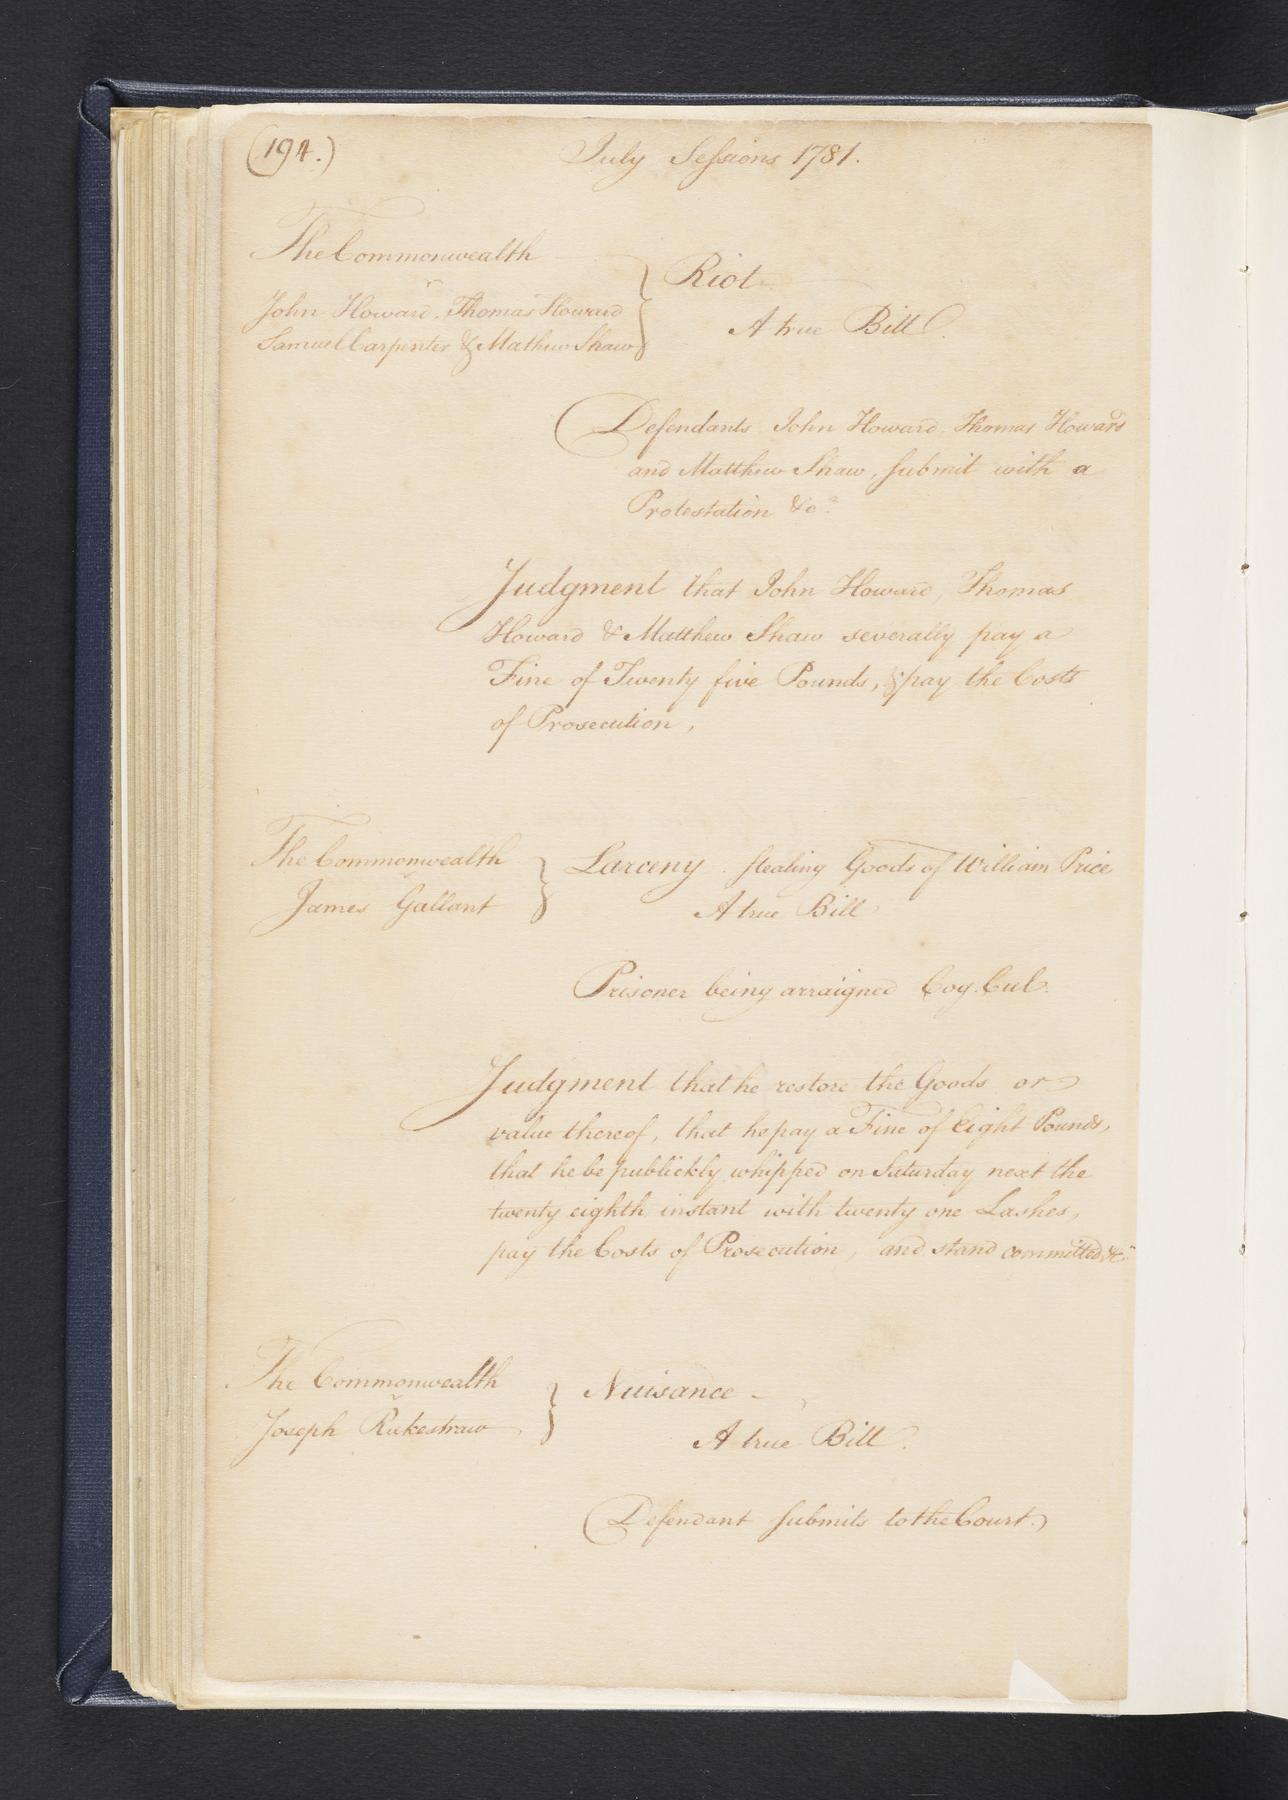 (194.)
July Sessions 1781.
The Commonwealth
v
John Howard, Thomas Howard
Samuel Carpenter & Mathew Shaw
Riot
A true Bill
Defendants John Howard, Thomas Howard
and Matthew Shaw, submit with a
Protestation &ca.
Judgment that John Howard, Thomas
Howard & Matthew Shaw severally pay a
Fine of Twenty five Pounds, & pay the Costs
of Prosecution,
The Commonwealth
v
James Gallant
Larceny. stealing Goods of William Price
A true Bill
Prisoner being arraigned Cog. Cul.
Judgment that he restore the Goods or
value thereof, that he pay a Fine of Eight Pounds,
that he be publickly whipped on Saturday next the
twenty eighth instant with twenty one Lashes,
pay the Costs of Prosecution, and stand committed &c
The Commonwealth
v
Joseph Rakestraw
Nuisance -
A true Bill.
Defendant submits to the Court.